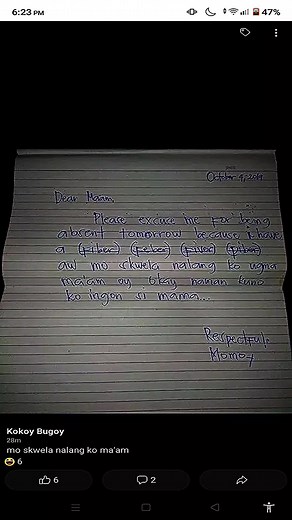 6:23 PM 47%
October 9, 2019
Dear Maam,
Please excuse me for being
absent tomorrow because I have
a (fibac) (feber) (pibor) (piber)
aw mo skwela nalang ko ugma
ma'am oy. Okay naman kuno
ko ingon si mama...
Respectful:
Momoy
Kokoy Bugoy
28m
mo skwela nalang ko ma'am
6
6 2